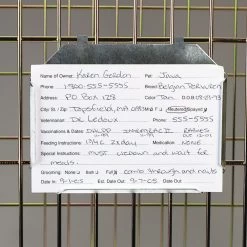 Name of Owner: Karen Gordon Pet: Java
Phone 1800-555-5555 Breed: Belgian Tervuren
Address: PO Box 128 Color: Tan
City St / Zip Topsfield, MA Neutered/Spayed
Veterinarian: Dr Ledoux Phone: 555-5555
Vaccinations & Dates: DHLPP RABIES
Feeding Instructions: 1 Medication: NONE
Special Instructions: Must liedown and wait for
meals.
Grooming: None Bath Full comb through and nails
Date In: 9-1-05 Est. Date Out: 9-7-05 Date Out